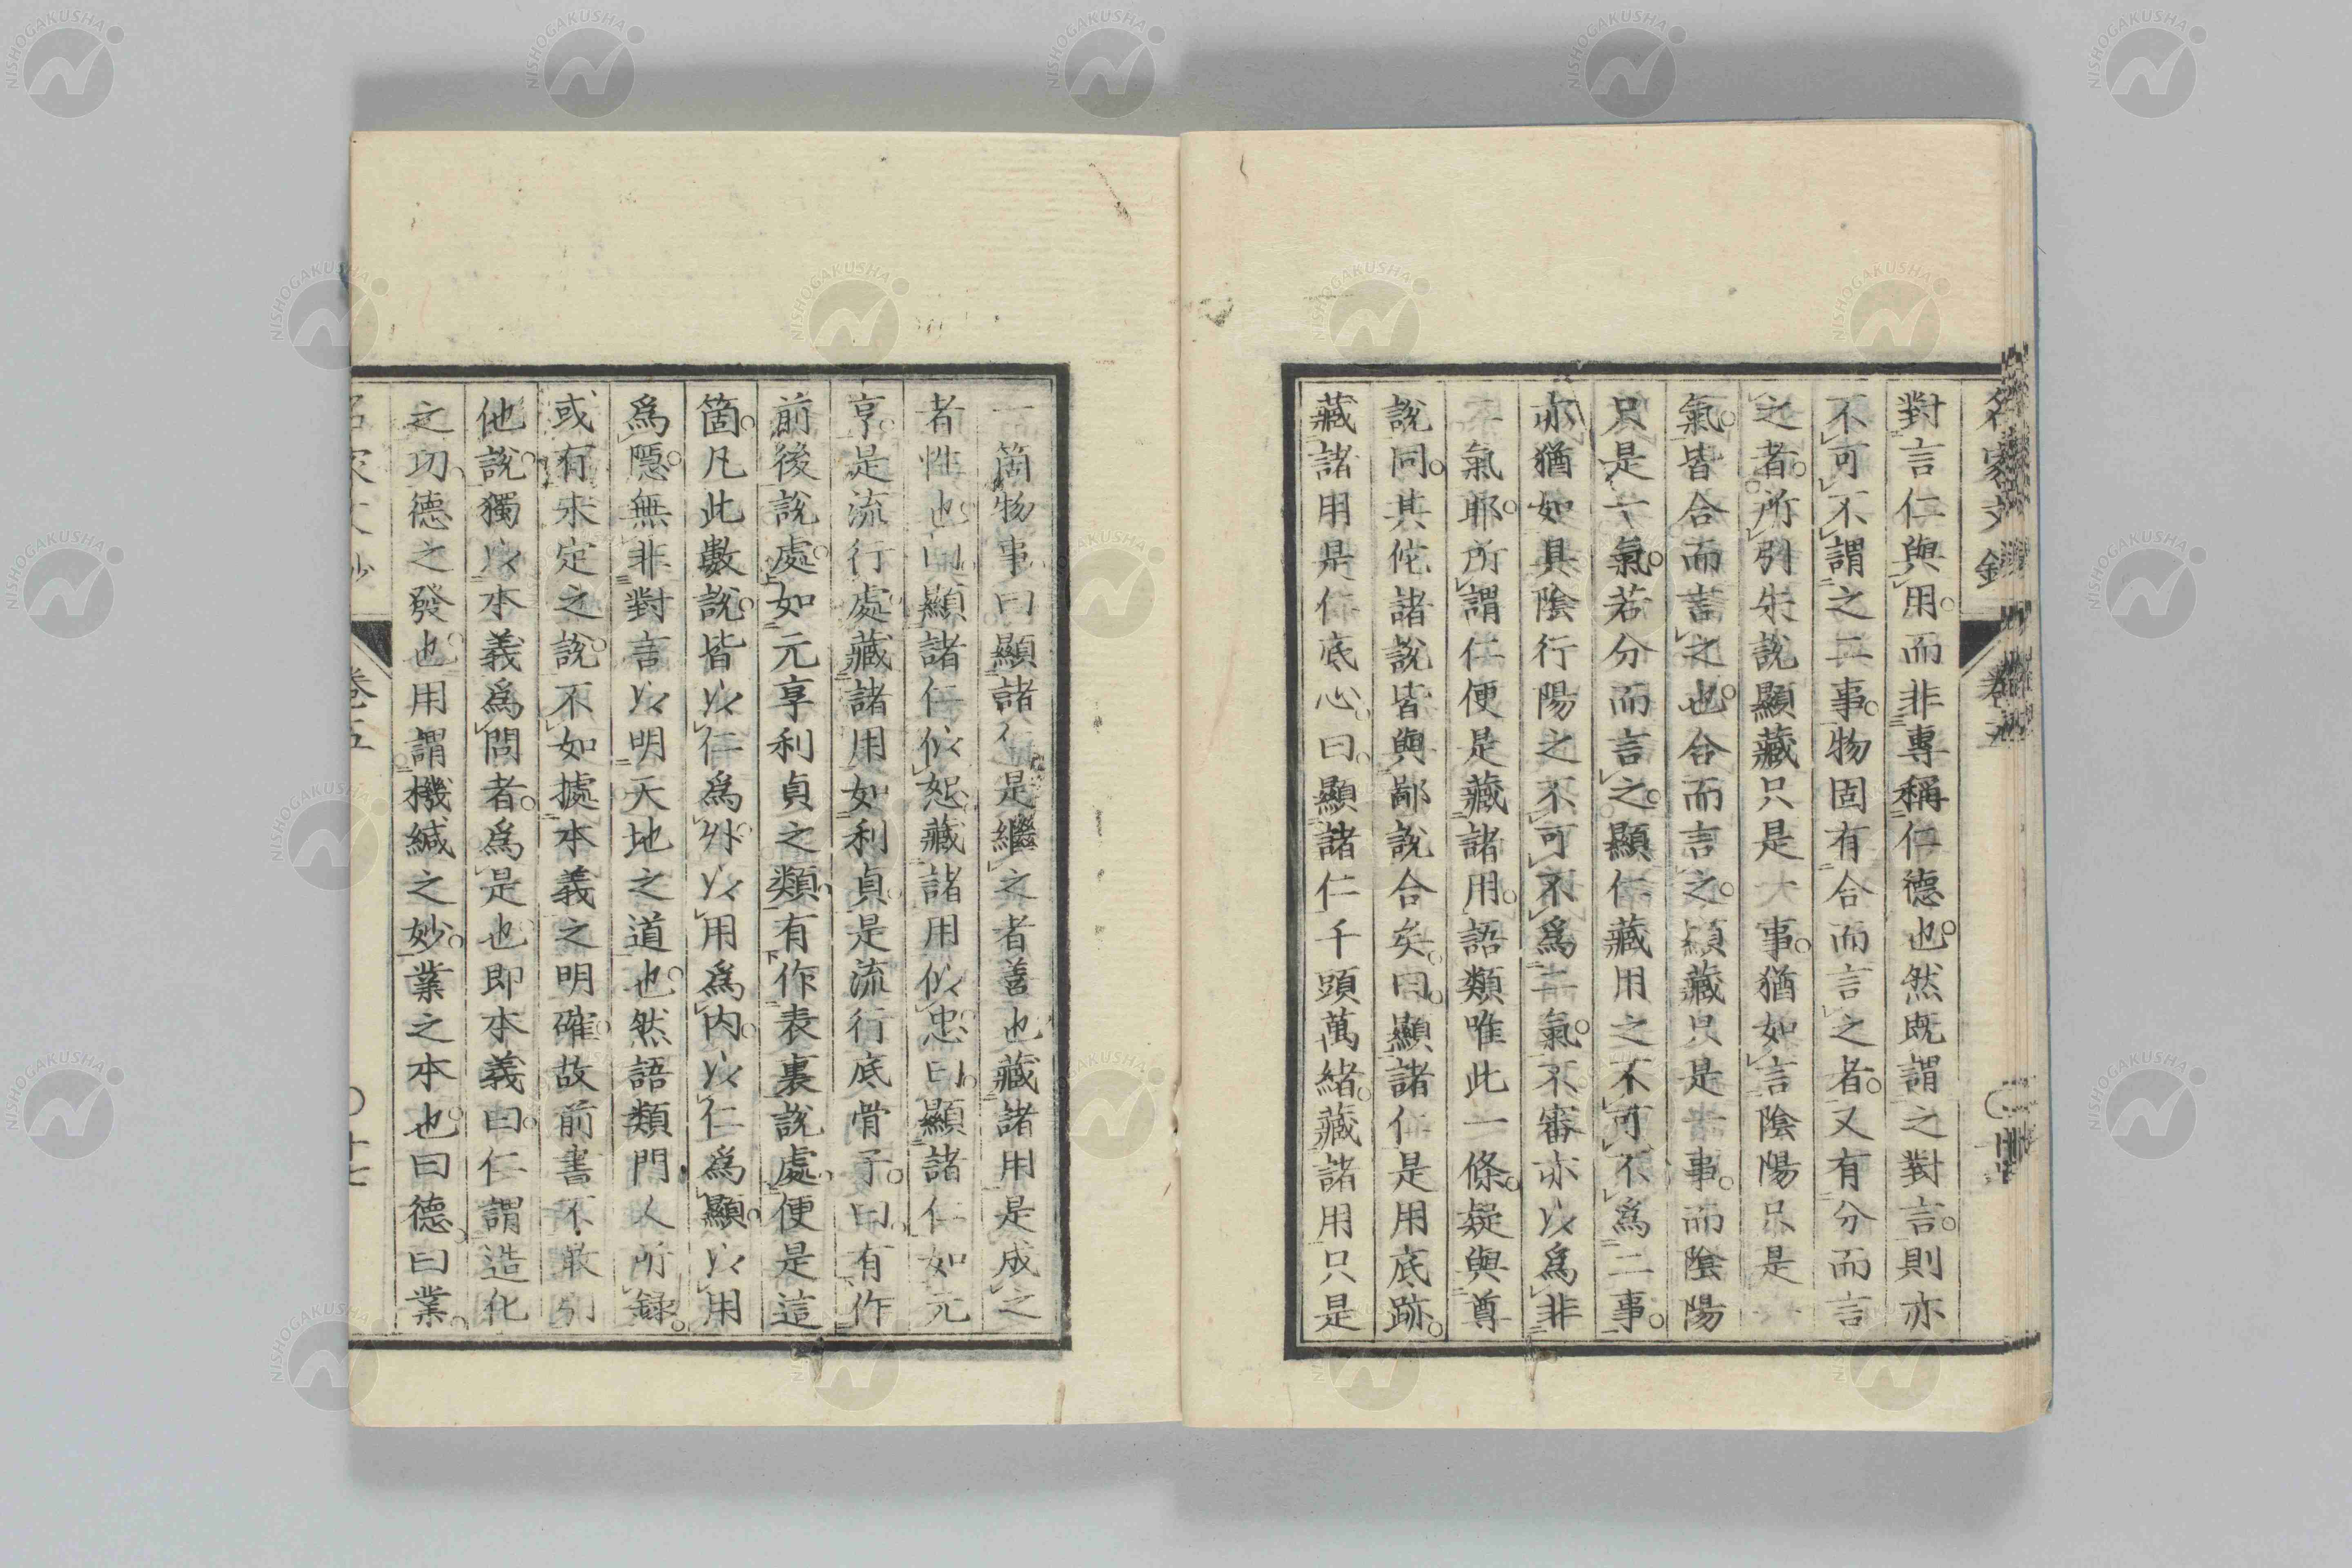 對言仁與用而非專稱仁德也然既謂之對言則亦
不可不謂之二事物固有合而言之者又有分而言
之者所引朱說顯藏只是一事猶如言陰陽只是一
氣皆合而言之也合而言之顯藏只是一事而陰陽
只是一氣若分而言之顯仁藏用之不可不爲二事
亦猶如其陰行陽之不可不爲二氣不審亦以爲非
二氣耶所謂仁便是藏諸用語類唯此一條疑與尊
說同其佗諸說皆與鄙說合矣曰顯諸仁是用底跡
藏諸用是仁底心曰顯諸仁千頭萬緒藏諸用只是
一箇物事曰顯諸仁是繼之者善也藏諸用是成之
者性也曰顯諸仁似恕藏諸用似忠曰顯諸仁如元
亨是流行處藏諸用如利貞是流行底骨子曰有作
前後說處如元亨利貞之類有作表裏說處便是這
箇凡此數說皆以仁爲外以用爲內以仁爲顯以用
爲隱無非對言以明天地之道也然語類門人所錄
或有未定之說不如據本義之明確故前書不敢引
他說獨以本義爲問者爲是也即本義曰仁謂造化
之功德之發也用謂機緘之妙業之本也曰德曰業
卷五
十七
NISHOGAKUSHA